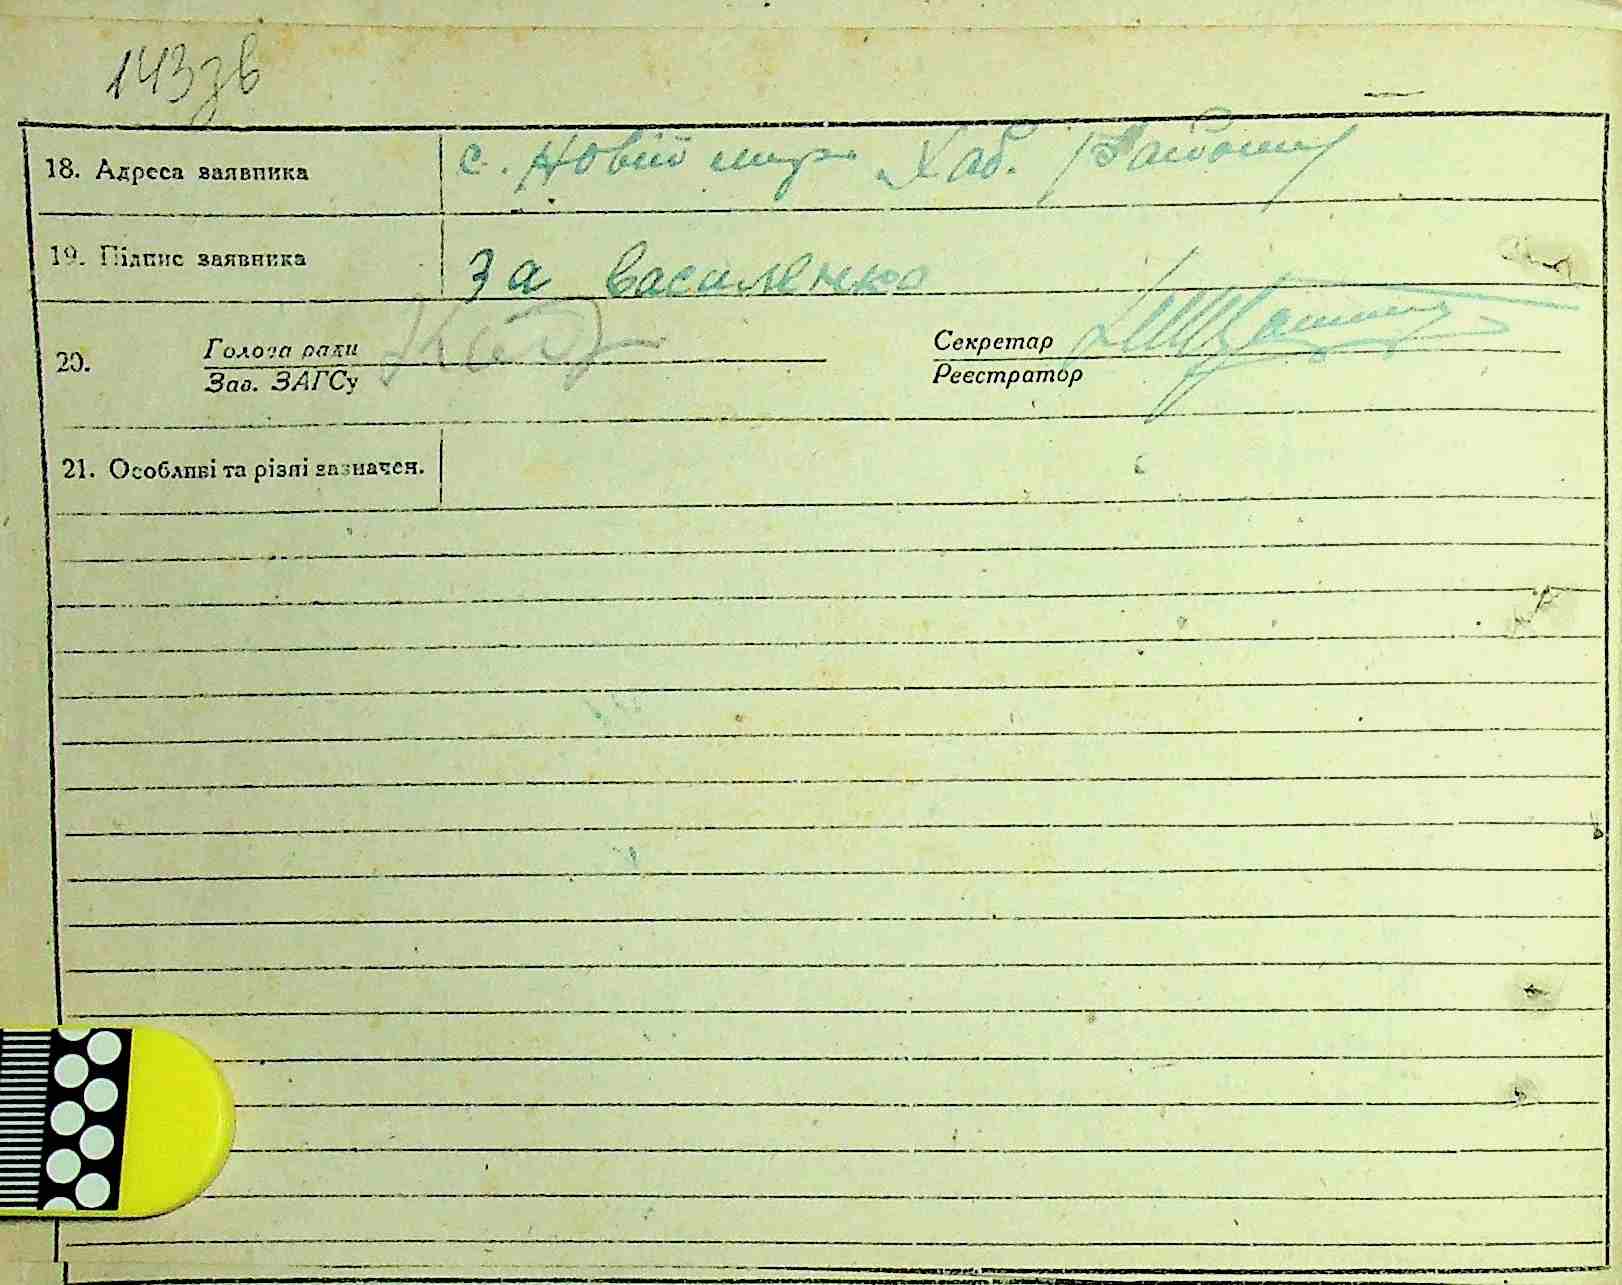 143зв
18. Адреса заявника с. Новий мир Хаб. Району
19. Підпис заявника За василенко
20. Голова ради Секретар
Зав. ЗАГСу Реєстратор
21. Особливі та різні зазначен.